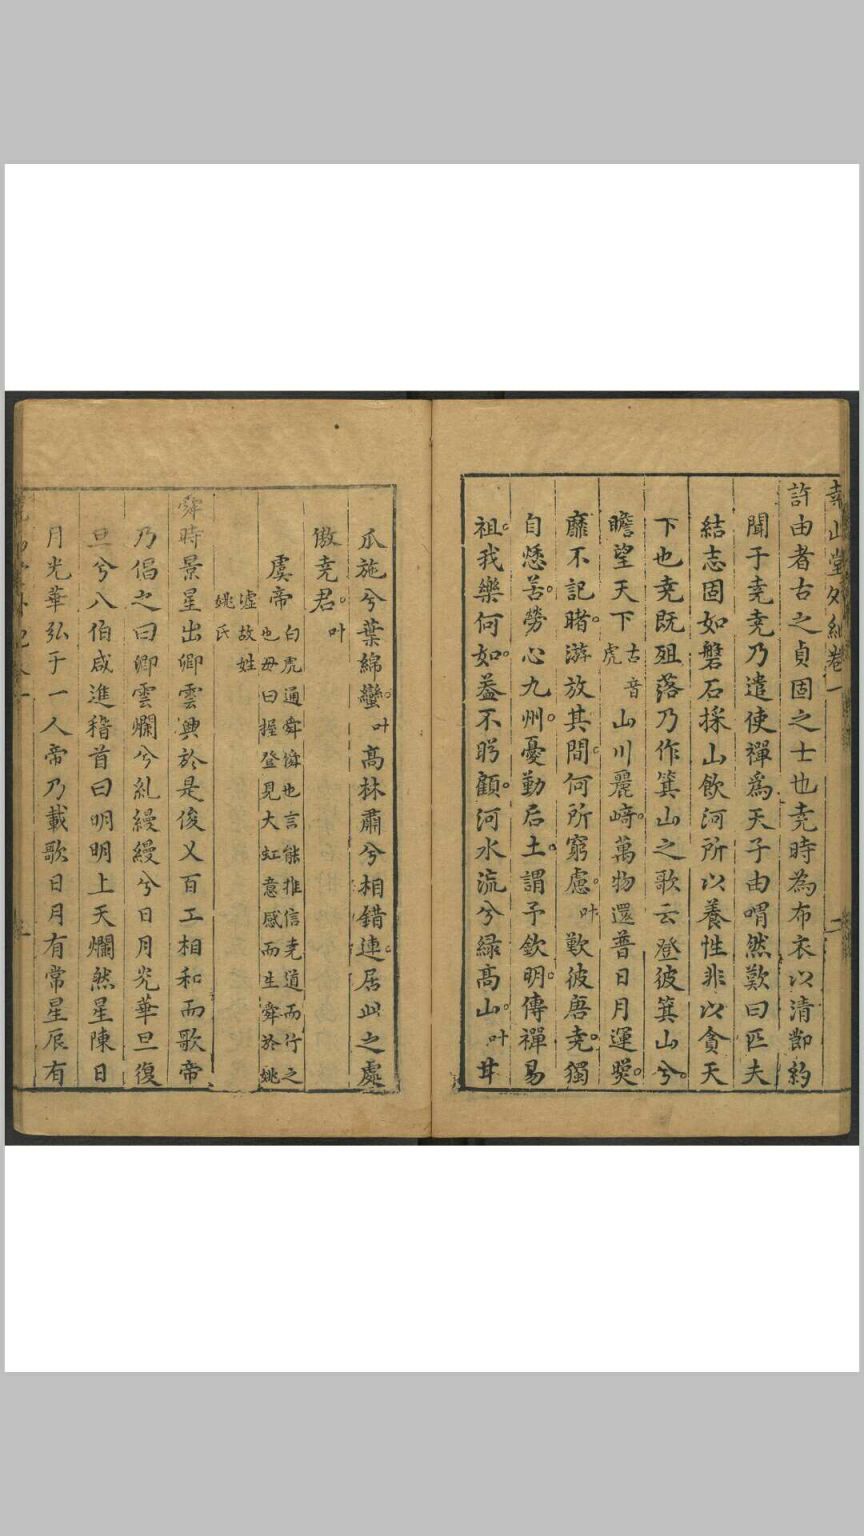 堯山堂外紀卷一 二
許由者古之貞固之士也堯時為布衣以清節約
聞于堯堯乃遣使禪爲天子由喟然歎曰匹夫
結志固如磐石採山飲河所以養性非以貪天
下也堯既殂落乃作箕山之歌云登彼箕山兮
瞻望天下古音虎山川麗﨑萬物還普日月運照
靡不記睹游放其間何所窮慮叶歎彼唐堯獨
自愁苦勞心九州憂勤后土謂予欽明傳禪易
祖我樂何如葢不盻顧河水流兮緑高山叶甘
瓜施兮葉綿蠻叶高林肅兮相錯連居此之處
傲堯君叶
虞帝白虎通舜僢也言能推信堯道而行之
也母曰握登見大虹意感而生舜於姚
墟故姓
姚氏
舜時景星出卿雲興於是俊乂百工相和而歌帝
乃倡之曰卿雲爛兮糺縵縵兮日月光華旦復
旦兮八伯咸進稽首曰明明上天爛然星陳日
月光華弘于一人帝乃載歌曰日月有常星辰有